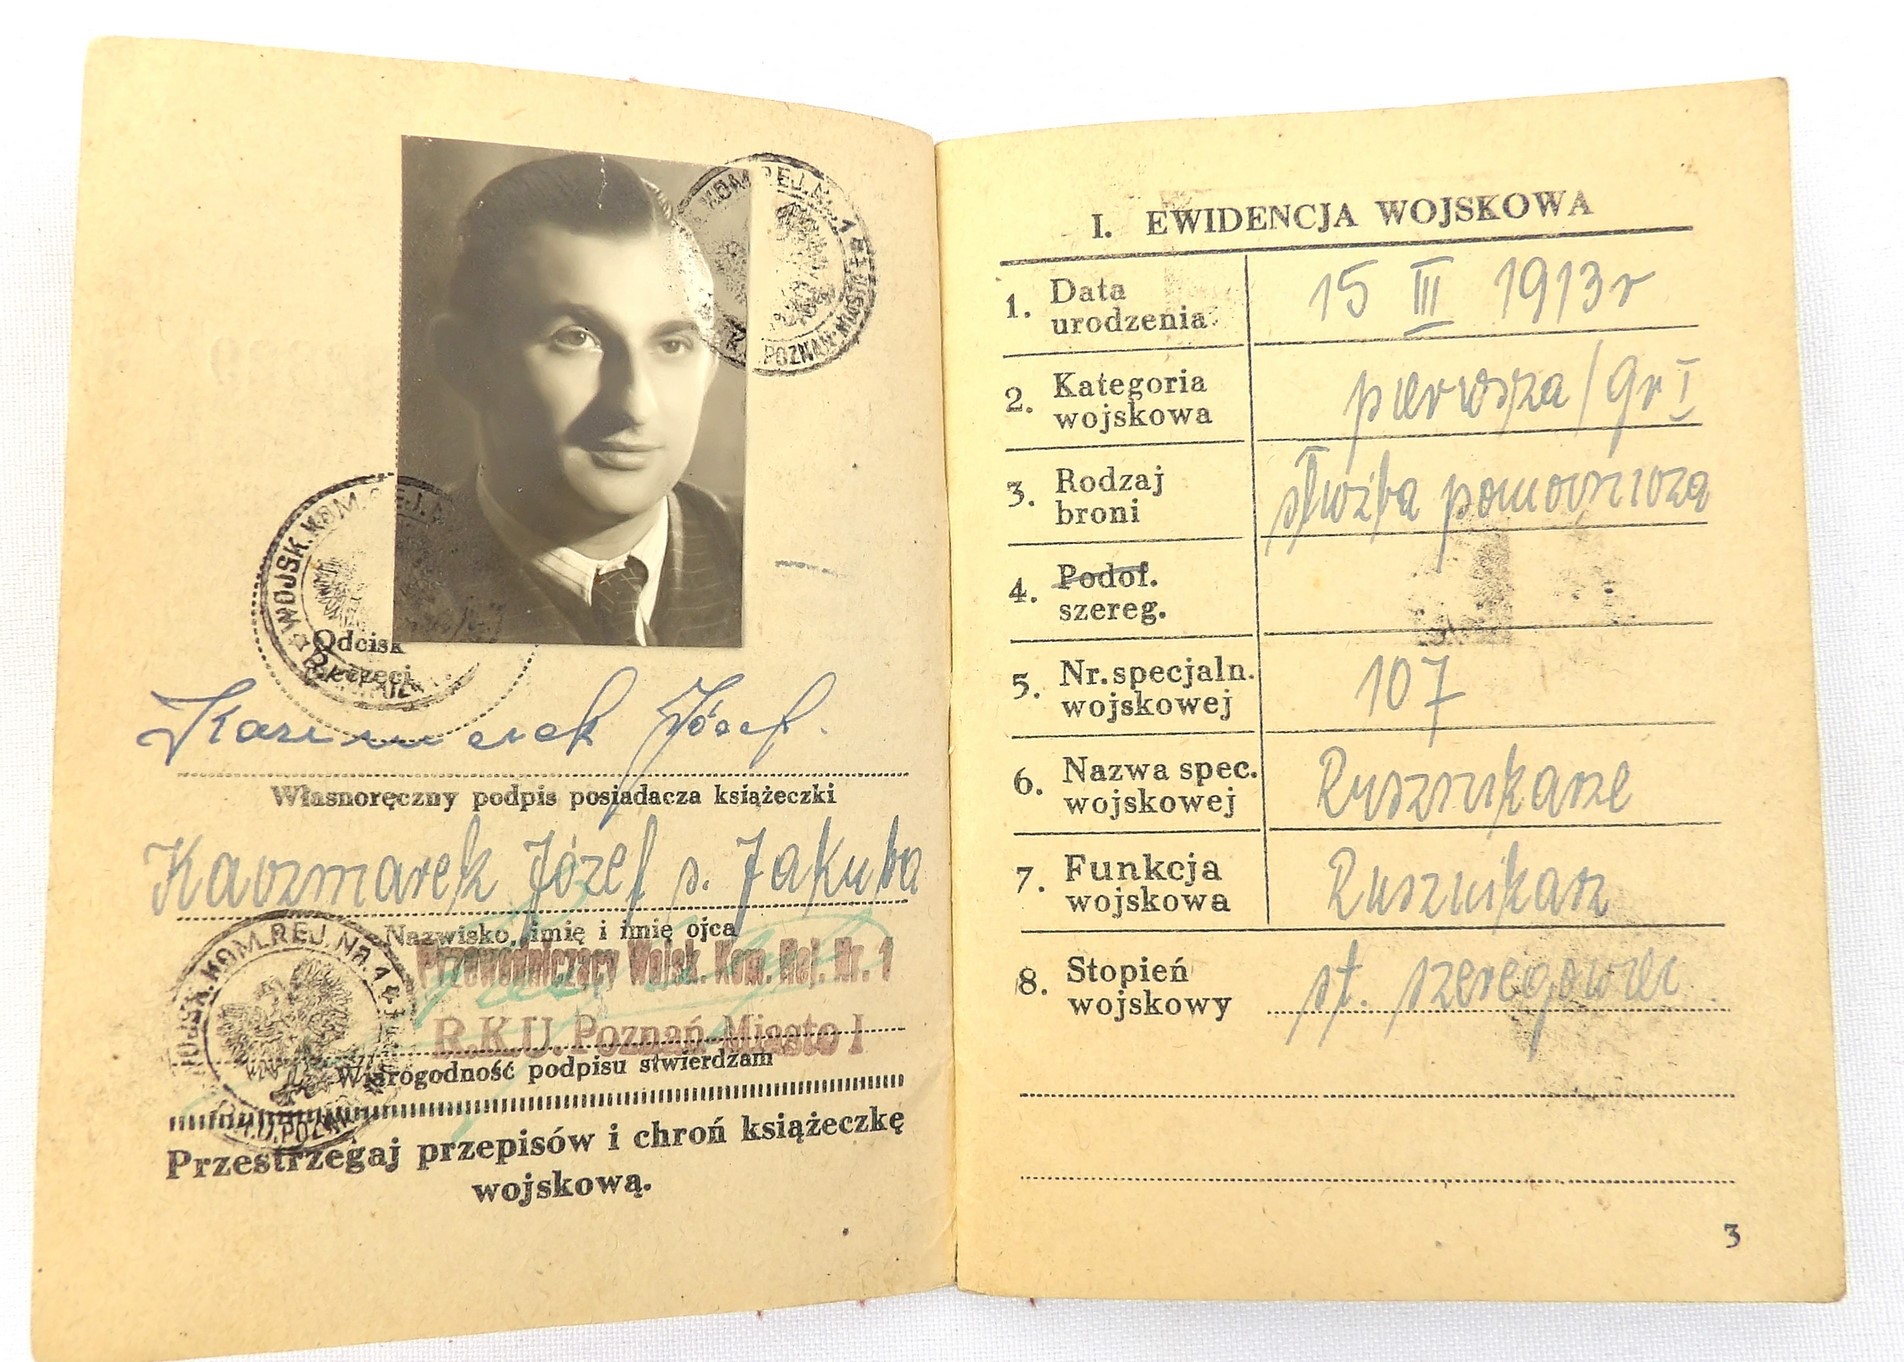 KOM. REJ. Nr. 1
POZNAŃ
WOJSK. KOM. REJ.
Odcisk
Pieczęci
Kaczmarek Józef.
Własnoręczny podpis posiadacza książeczki
Kaczmarek Józef s. Jakuba
Nazwisko, imię i imię ojca
Przewodniczący Wojsk. Kom. Rej. Nr. 1
R.K.U. Poznań-Miasto I
WOJSK. KOM. REJ. NR. 1
POZNAŃ
Wiarogodność podpisu stwierdzam
Przestrzegaj przepisów i chroń książeczkę
wojskową.
I. EWIDENCJA WOJSKOWA
1. Data urodzenia 15 III 1913 r
2. Kategoria wojskowa pierwsza / gr I
3. Rodzaj broni służba pomocnicza
4. Podof. szereg.
5. Nr. specjaln. wojskowej 107
6. Nazwa spec. wojskowej Rusznikarze
7. Funkcja wojskowa Rusznikarz
8. Stopień wojskowy st. szeregowiec
3